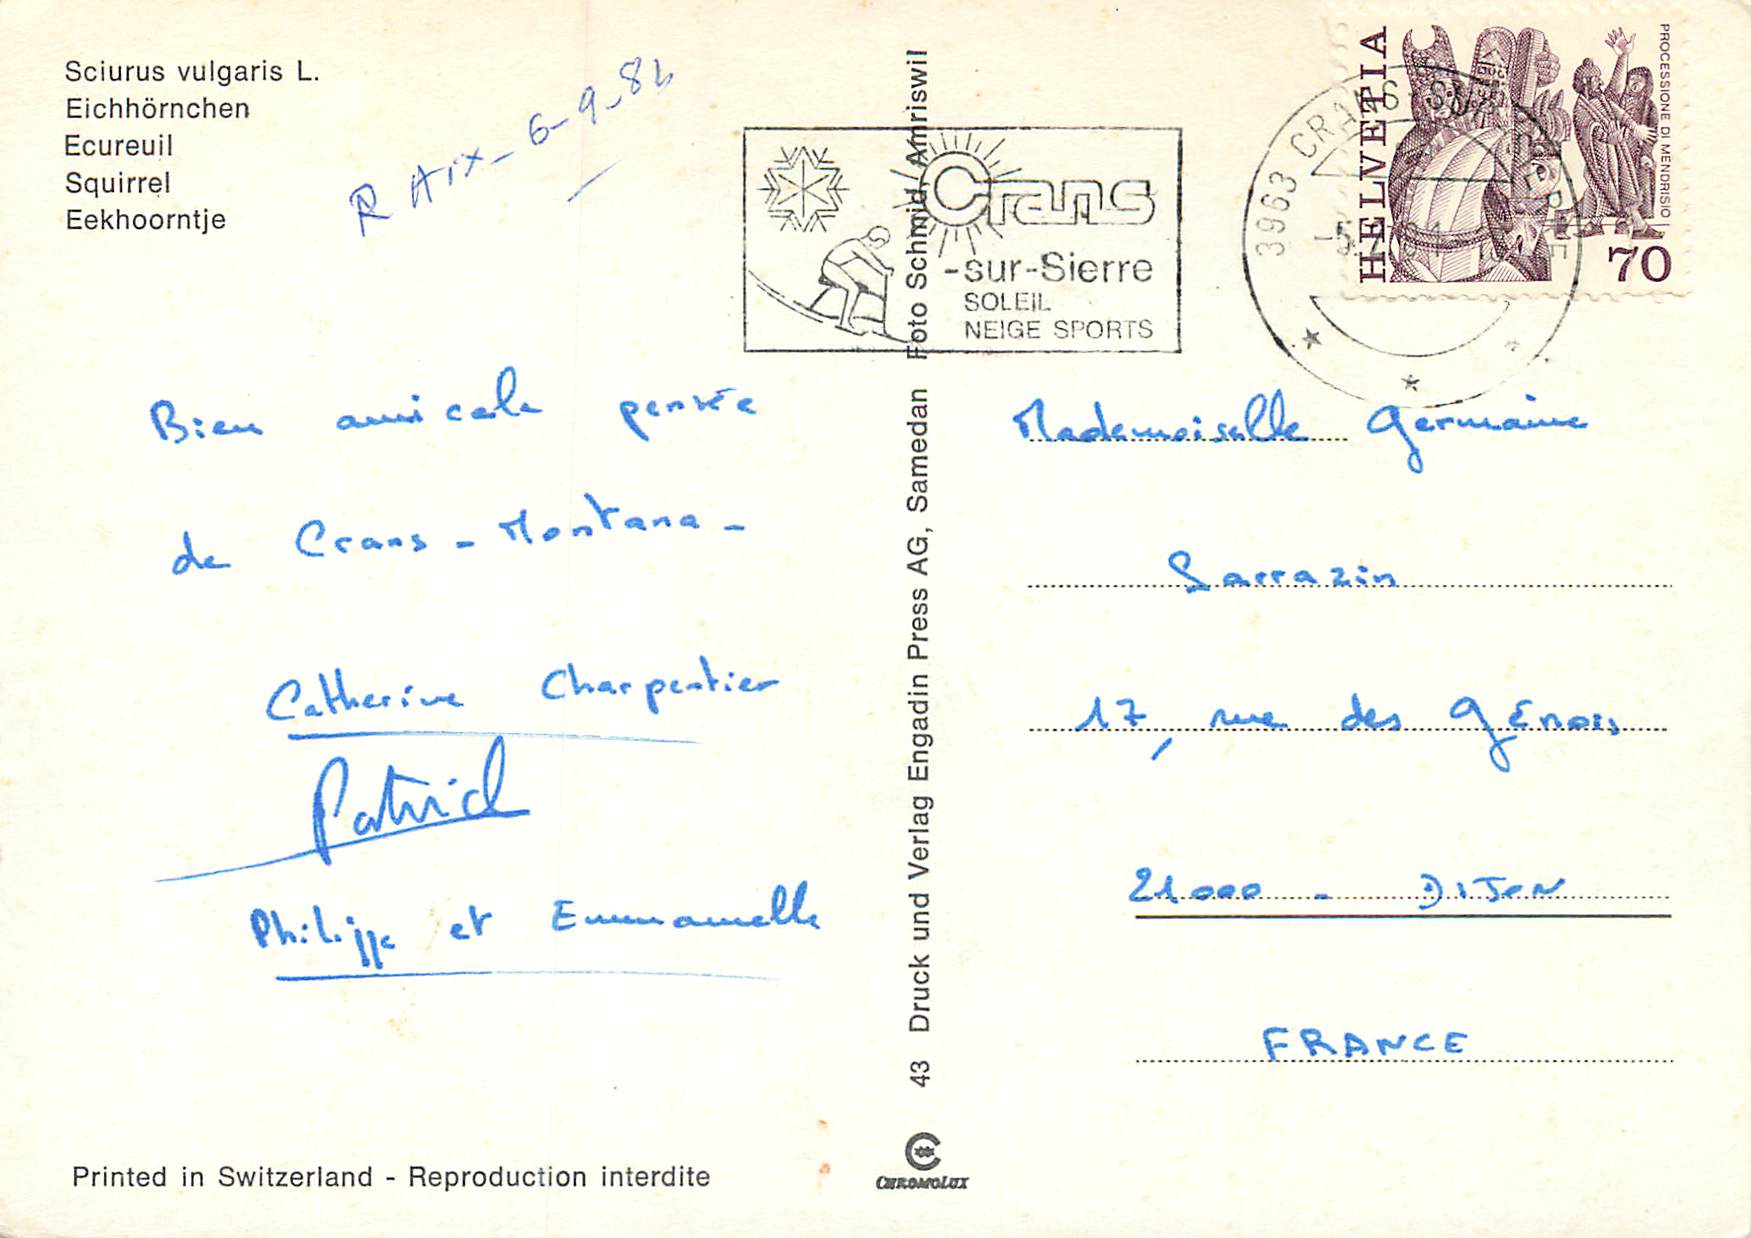 Sciurus vulgaris L.
Eichhörnchen
Ecureuil
Squirrel
Eekhoorntje
R Aix - 6-9-84
Crans
-sur-Sierre
SOLEIL
NEIGE SPORTS
3963 CRANS-SUR-SIERRE
HELVETIA
PROCESSIONE DI MENDRISIO
70
Bien amicale pensée
de Crans - Montana -
Catherine Charpentier
Patrick
Philippe et Emmanuelle
43 Druck und Verlag Engadin Press AG, Samedan Foto Schmid, Amriswil
Mademoiselle Germaine
Sarrazin
17, rue des Génois
21000 - DIJON
FRANCE
Printed in Switzerland - Reproduction interdite
CHROMOLUX